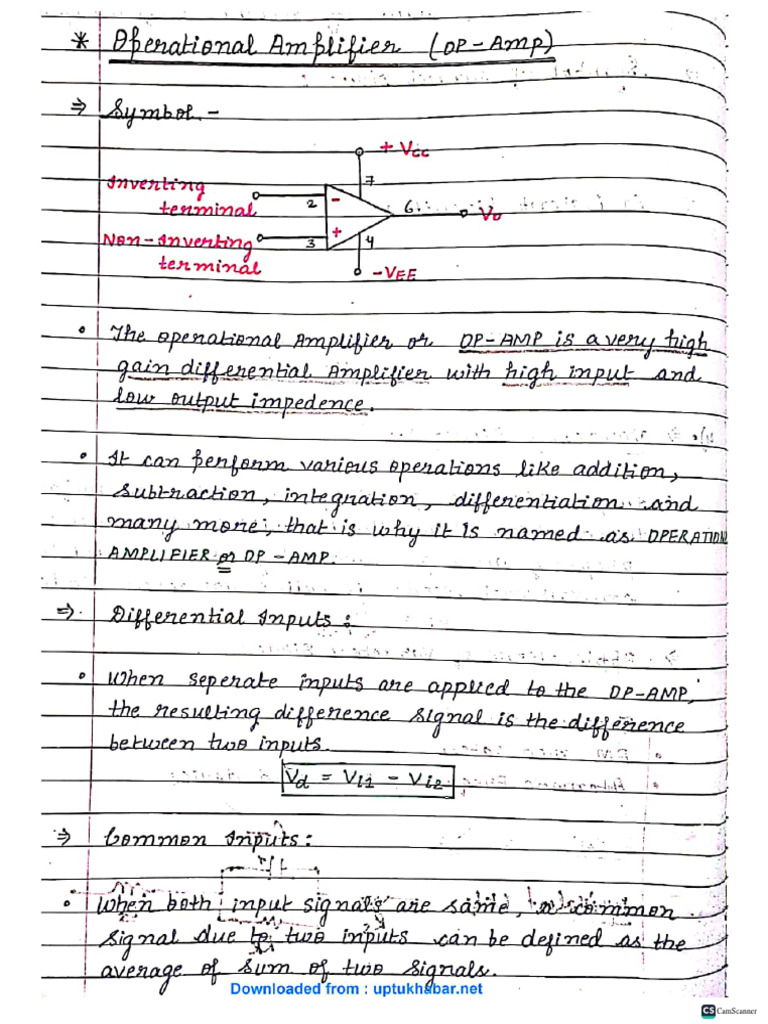 * Operational Amplifier (OP-Amp)
⇒ Symbol -
+ VCC
7
Inverting
terminal
2
-
6
Vo
Non-Inverting
terminal
3
+
4
-VEE
• The operational Amplifier or OP-AMP is a very high
gain differential Amplifier with high input and
low output impedence.
• It can perform various operations like addition,
subtraction, integration, differentiation and
many more, that is why it is named as OPERATION
AMPLIFIER or OP-AMP.
⇒ Differential Inputs:
• When seperate inputs are applied to the OP-AMP,
the resulting difference signal is the difference
between two inputs.
Vd = Vi1 - Vi2
⇒ Common Inputs:
• When both input signals are same, a common
signal due to two inputs can be defined as the
average of sum of two signals.
Downloaded from : uptukhabar.net
CS CamScanner